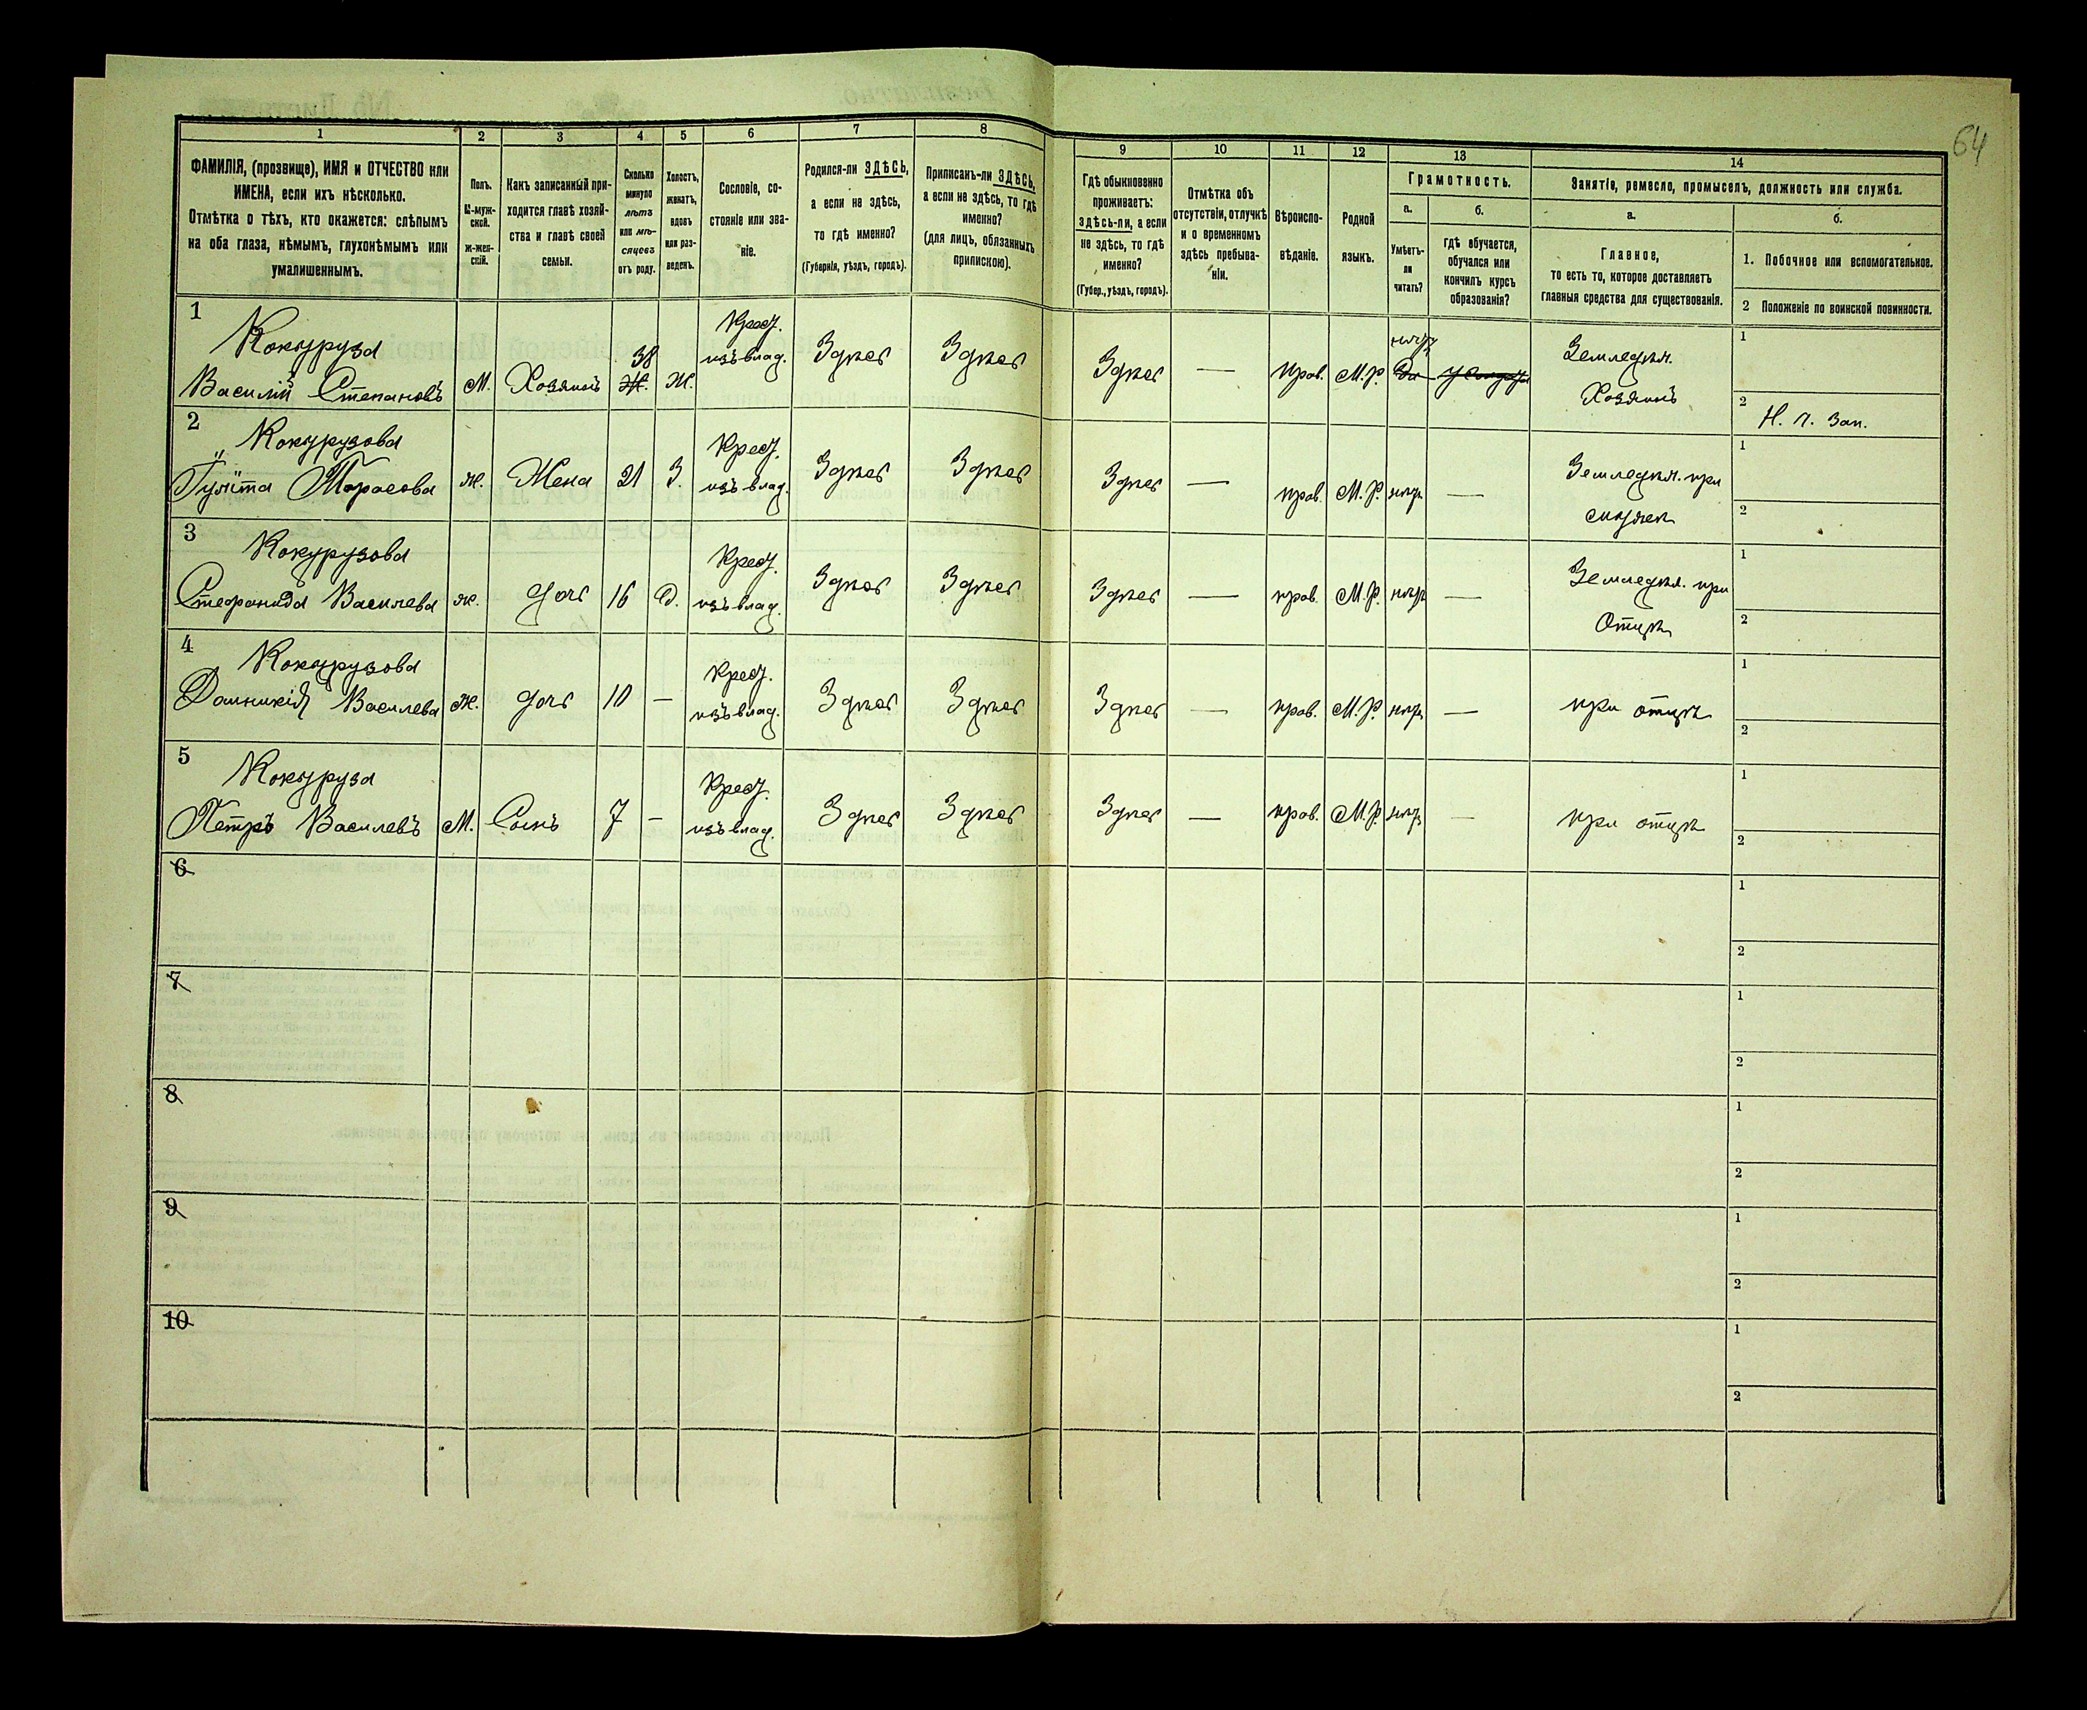 64
1 2 3 4 5 6 7 8 9 10 11 12 13 14
ФАМИЛІЯ, (прозвище), ИМЯ и ОТЧЕСТВО или
ИМЕНА, если ихъ нѣсколько.
Отмѣтка о тѣхъ, кто окажется: слѣпымъ
на оба глаза, нѣмымъ, глухонѣмымъ или
умалишеннымъ.
Полъ.
М-муж-
ской.
ж-жен-
скій.
Какъ записанный при-
ходится главѣ хозяй-
ства и главѣ своей
семьи.
Сколько
минуло
лѣтъ
или мѣ-
сяцевъ
отъ роду.
Холостъ,
женатъ,
вдовъ
или раз-
веденъ.
Сословіе, со-
стояніе или зва-
ніе.
Родился-ли ЗДѢСЬ,
а если не здѣсь,
то гдѣ именно?
(Губернія, уѣздъ, городъ).
Приписанъ-ли ЗДѢСЬ,
а если не здѣсь, то гдѣ
именно?
(для лицъ, обязанныхъ
припискою).
Гдѣ обыкновенно
проживаетъ:
здѣсь-ли, а если
не здѣсь, то гдѣ
именно?
(Губер., уѣздъ, городъ).
Отмѣтка объ
отсутствіи, отлучкѣ
и о временномъ
здѣсь пребыва-
ніи.
Вѣроиспо-
вѣданіе.
Родной
языкъ.
Грамотность.
а.
Умѣетъ-
ли
читать?
б.
гдѣ обучается,
обучался или
кончилъ курсъ
образованія?
Занятіе, ремесло, промыселъ, должность или служба.
а.
Главное,
то есть то, которое доставляетъ
главныя средства для существованія.
б.
1. Побочное или вспомогательное.
2 Положеніе по воинской повинности.
1
Кокуруза Крест. нѣтъ Земледѣл. 1
38
Василій Степановъ М. Хозяинъ Ж. изъ влад. Здѣсь Здѣсь Здѣсь — прав. М.Р. Да Хозяинъ
2 Н. п. зап.
2
Кокурузова Крест. Земледѣл. при 1
Тарасова ж. Жена 21 З. изъ влад. Здѣсь Здѣсь Здѣсь — прав. М.Р. нѣтъ — мужѣ 2
3
Кокурузова Крест. Земледѣл. при 1
Стефанида Василева ж. дочь 16 Д. изъ влад. Здѣсь Здѣсь Здѣсь — прав. М.Р. нѣтъ — Отцѣ 2
4
Кокурузова Крест. 1
Домникія Василева ж. дочь 10 — изъ влад. Здѣсь Здѣсь Здѣсь — прав. М.Р. нѣтъ — при отцѣ 2
5
Кокуруза Крест. 1
Петръ Василевъ М. Сынъ 7 — изъ влад. Здѣсь Здѣсь Здѣсь — прав. М.Р. нѣтъ — при отцѣ 2
6 1
2
7 1
2
8 1
2
9 1
2
10 1
2